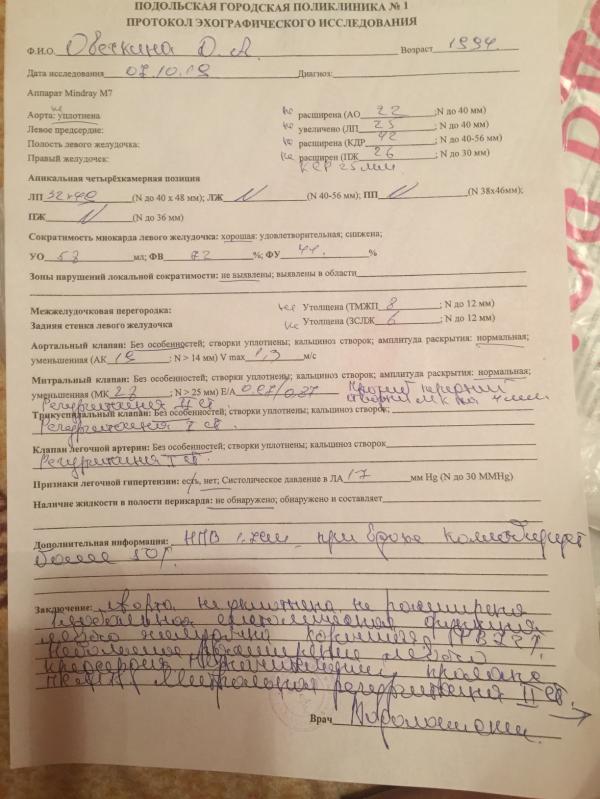 ПОДОЛЬСКАЯ ГОРОДСКАЯ ПОЛИКЛИНИКА № 1
ПРОТОКОЛ ЭХОГРАФИЧЕСКОГО ИССЛЕДОВАНИЯ
Ф.И.О. Овечкина О. А. Возраст 1994.
Дата исследования 07.10.19 Диагноз:
Аппарат Mindray M7
Аорта: не уплотнена не расширена (АО 22 ;N до 40 мм)
Левое предсердие: не увеличено (ЛП 25 ; N до 40 мм)
Полость левого желудочка: не расширена (КДР 42 ; N до 40-56 мм)
Правый желудочек: не расширен (ПЖ 26 ; N до 30 мм)
КСР 25 мм.
Апикальная четырёхкамерная позиция
ЛП 32х40 (N до 40 х 48 мм); ЛЖ N (N 40-56 мм); ПП N (N 38х46мм);
ПЖ N (N до 36 мм)
Сократимость миокарда левого желудочка: хорошая: удовлетворительная; снижена;
УО 58 мл; ФВ 72 %; ФУ 41. %
Зоны нарушений локальной сократимости: не выявлены; выявлены в области
Межжелудочковая перегородка: не Утолщена (ТМЖП 8 ; N до 12 мм)
Задняя стенка левого желудочка не Утолщена (ЗСЛЖ 6 ; N до 12 мм)
Аортальный клапан: Без особенностей; створки уплотнены; кальциноз створок; амплитуда раскрытия: нормальная;
уменьшенная (АК 19 ; N > 14 мм) V max 1,3 м/с
Митральный клапан: Без особенностей; створки уплотнены; кальциноз створок; амплитуда раскрытия: нормальная;
уменьшенная (МК 28 ; N > 25 мм) Е/А Пролапс передней
створки МК на 4 мм.
Регургитация II ст
Трикуспидальный клапан: Без особенностей; створки уплотнены; кальциноз створок;
Регургитация I ст.
Клапан легочной артерии: Без особенностей; створки уплотнены; кальциноз створок
Регургитация I ст
Признаки легочной гипертензии: есть, нет; Систолическое давление в ЛА 17 мм Hg (N до 30 MMHg)
Наличие жидкости в полости перикарда: не обнаружено; обнаружено и составляет
Дополнительная информация: НПВ при вдохе коллабирует
более 50%.
Заключение: Аорта не уплотнена, не расширена
Глобальная систолическая функция
левого желудочка хорошая ФВ 72%.
Небольшое расширение левого
предсердия. пролапс
Митральная регургитация II ст.
Врач